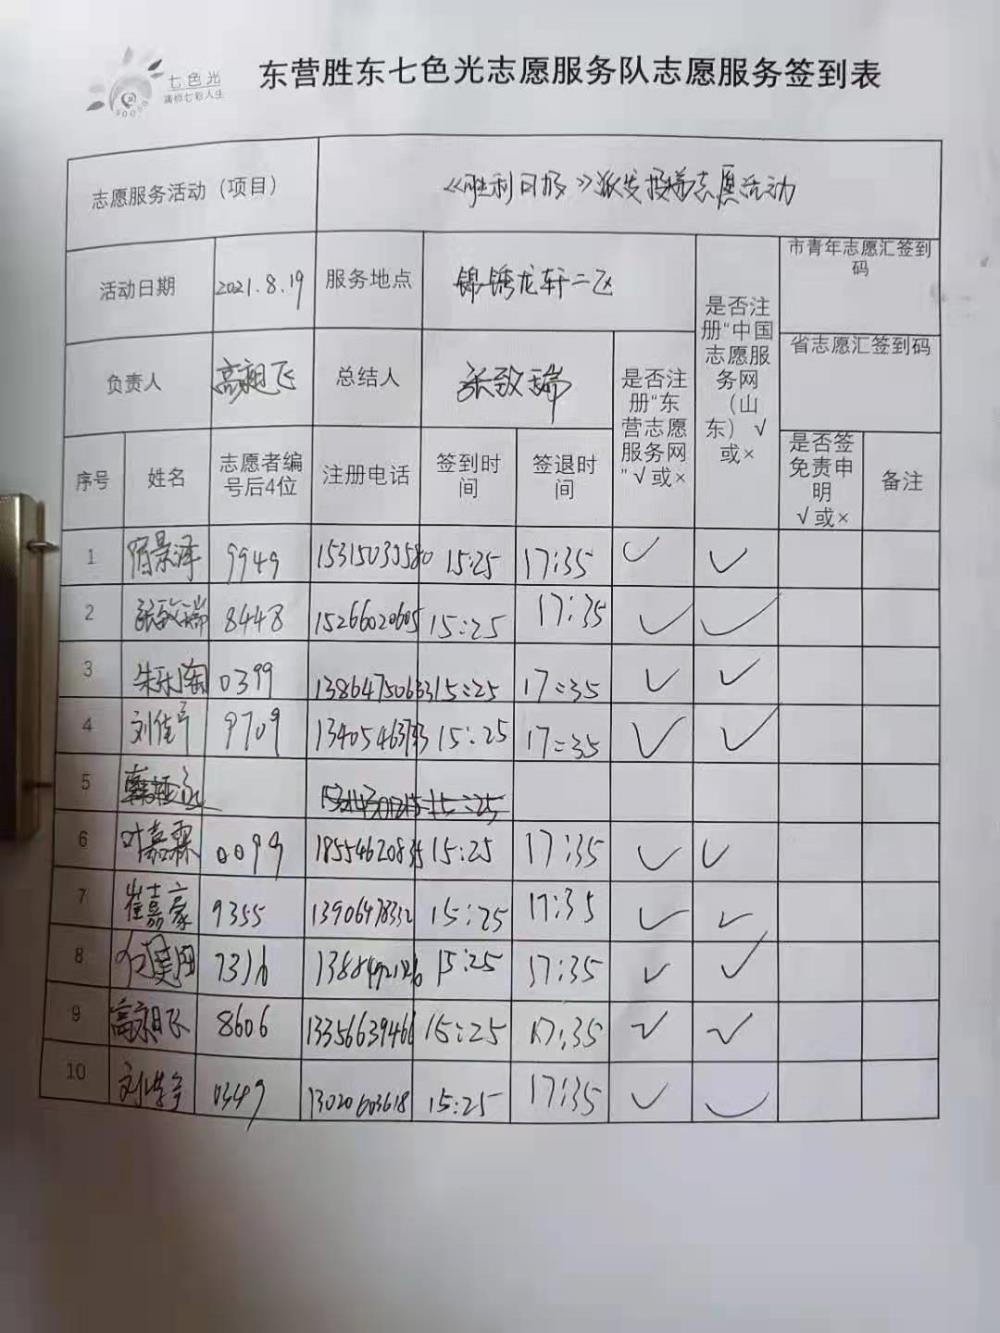 七色光
满怀七彩人生
东营胜东七色光志愿服务队志愿服务签到表
志愿服务活动（项目） 《胜利日报》派发投递志愿活动
活动日期 2021.8.19 服务地点 锦绣龙轩二区 是否注册"中国志愿服务网（山东）√或× 市青年志愿汇签到码
省志愿汇签到码
负责人 高翔飞 总结人 张致瑞 是否注册"东营志愿服务网"√或×
序号 姓名 志愿者编号后4位 注册电话 签到时间 签退时间 是否签免责申明√或× 备注
1 景泽 9949 15:25 17:35 ✓ ✓
2 张致瑞 8448 15266020605 15:25 17:35 ✓ ✓
3 朱 0399 15:25 17:35 ✓ ✓
4 刘佳宁 9709 15:25 17:35 ✓ ✓
5 15:25
6 叶嘉霖 0099 18554620835 15:25 17:35 ✓ ✓
7 崔嘉豪 9355 15:25 17:35 ✓ ✓
8 7316 15:25 17:35 ✓ ✓
9 高翔飞 8606 13356639466 15:25 17:35 ✓ ✓
10 刘 0349 15:25 17:35 ✓ ✓